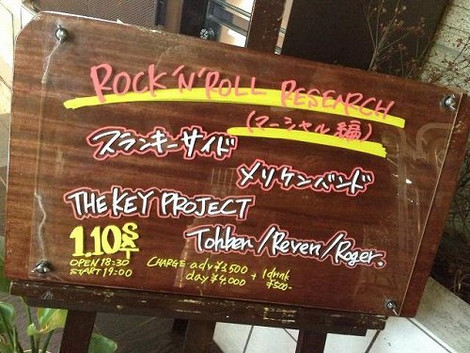 ROCK'N'ROLL RESEARCH
(マーシャル編)
スランキーサイド
メリケンバンド
THE KEY PROJECT
1.10 SAT Tohben/Reven/Roger.
OPEN 18:30 CHARGE adv¥3,500 + 1drink
START 19:00 day¥4,000 ¥500-